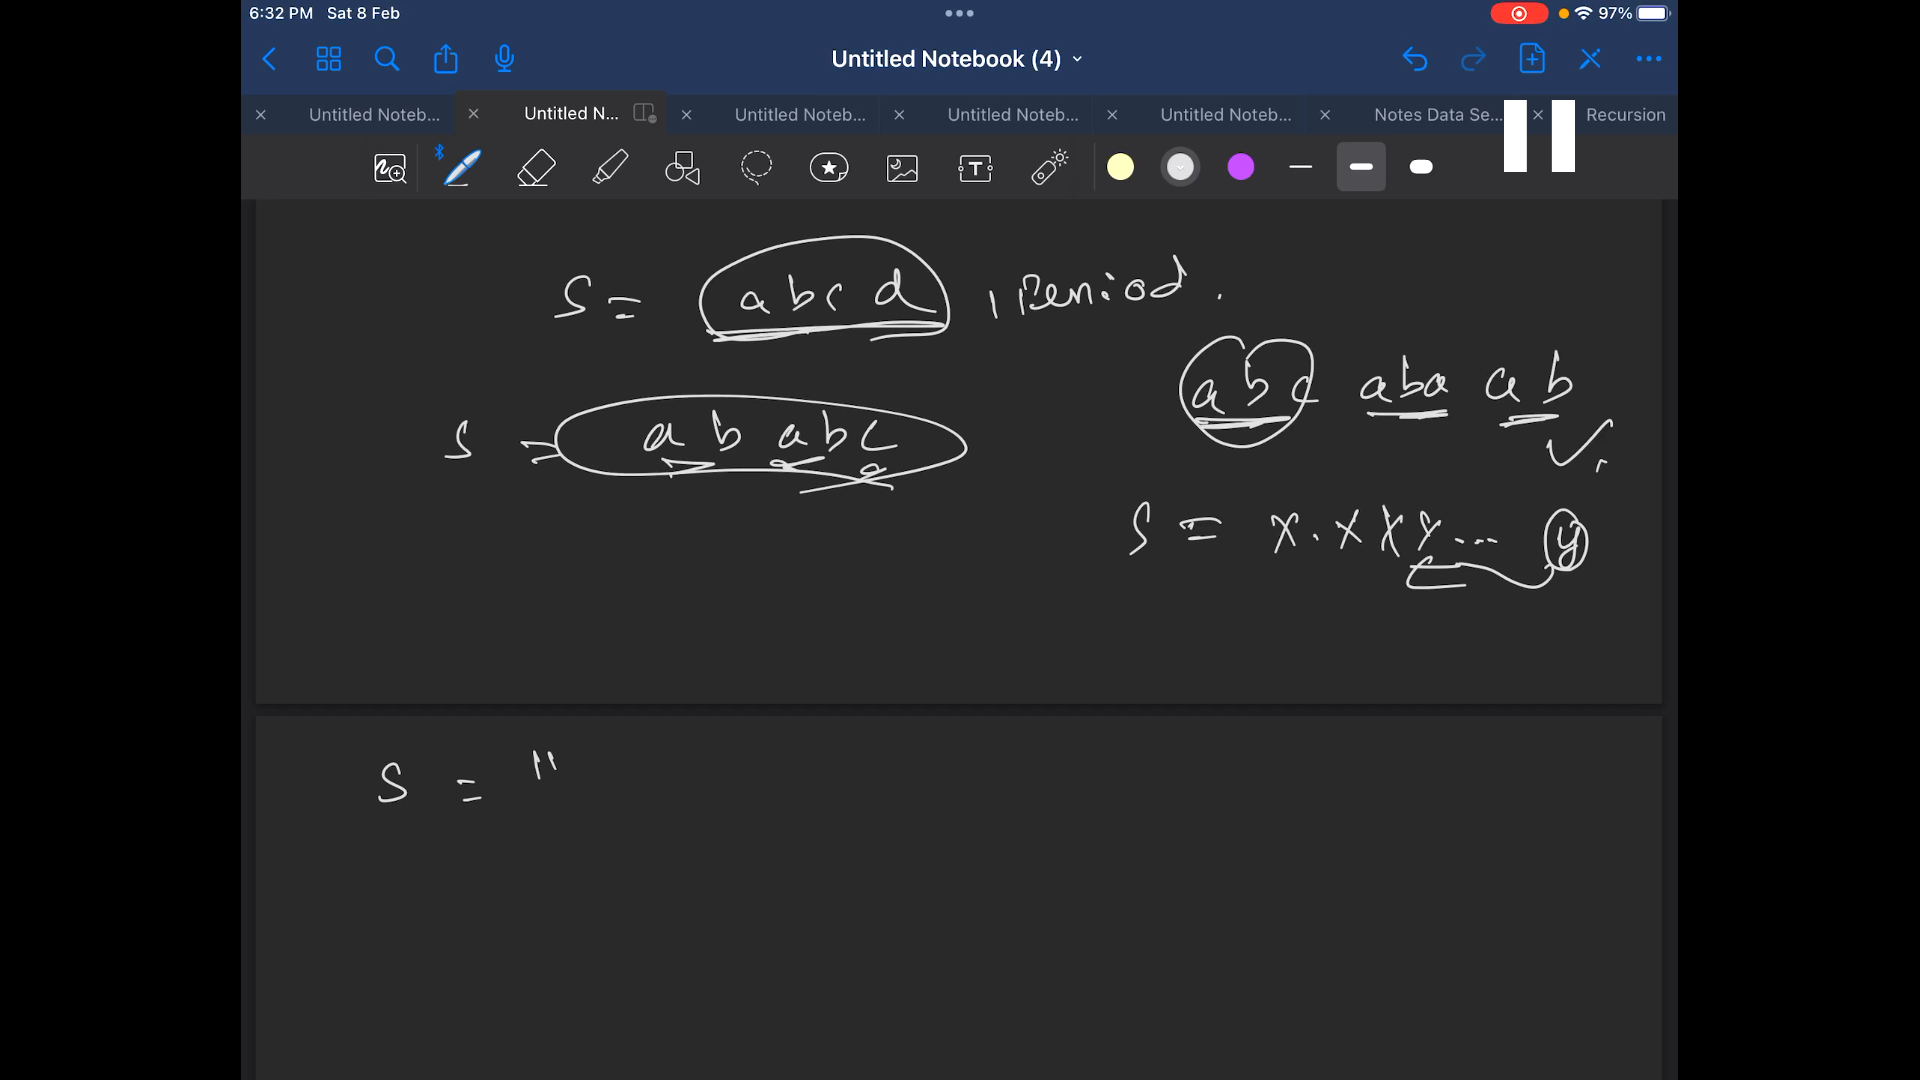 6:32 PM Sat 8 Feb 97%
Untitled Notebook (4)
Untitled Noteb... Untitled N... Untitled Noteb... Untitled Noteb... Untitled Noteb... Notes Data Se... Recursion
T
S = a b c d , Period.
a b c a b a a b
S = a b a b c
S = x . x x x ... y
S = "